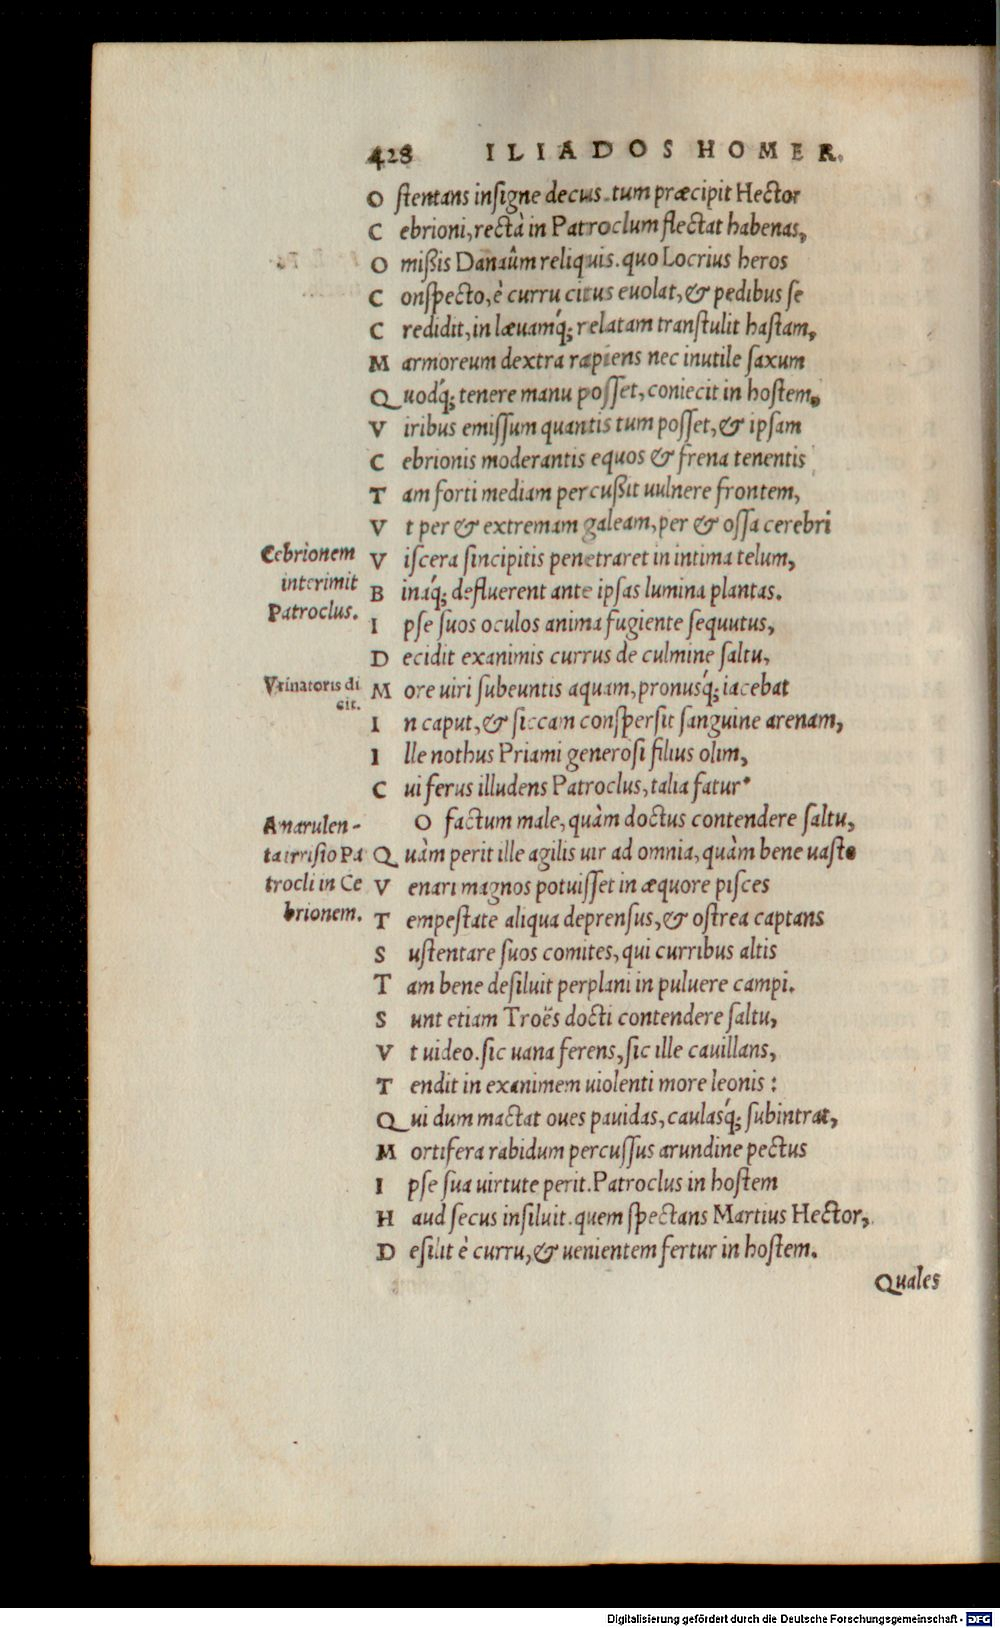 428 ILIADOS HOMER.
O ſtentans inſigne decus. tum præcipit Hector
C ebrioni, rectà in Patroclum flectat habenas,
O mißis Danaûm reliquis. quo Locrius heros
C onſpecto, è curru citus euolat, & pedibus ſe
C redidit, in læuamq́; relatam tranſtulit haſtam,
M armoreum dextra rapiens nec inutile ſaxum
Q uodq́; tenere manu poſſet, coniecit in hoſtem,
V iribus emiſſum quantis tum poſſet, & ipſam
C ebrionis moderantis equos & frena tenentis
T am forti mediam percußit uulnere frontem,
V t per & extremam galeam, per & oſſa cerebri
Cebrionem V iſcera ſincipitis penetraret in intima telum,
interimit B inaq́; defluerent ante ipſas lumina plantas.
Patroclus. I pſe ſuos oculos anima fugiente ſequutus,
D ecidit exanimis currus de culmine ſaltu,
Vrinatoris di M ore uiri ſubeuntis aquam, pronusq́; iacebat
cit. I n caput, & ſiccam conſperſit ſanguine arenam,
I lle nothus Priami generoſi filius olim,
C ui ferus illudens Patroclus, talia fatur.
Amarulen- O factum male, quàm doctus contendere ſaltu,
ta irriſio Pa Q uàm perit ille agilis uir ad omnia, quàm bene uaſto
trocli in Ce V enari magnos potuiſſet in æquore piſces
brionem. T empeſtate aliqua deprenſus, & oſtrea captans
S uſtentare ſuos comites, qui curribus altis
T am bene deſiluit perplani in puluere campi.
S unt etiam Troës docti contendere ſaltu,
V t uideo. ſic uana ferens, ſic ille cauillans,
T endit in exanimem uiolenti more leonis:
Q ui dum mactat oues pauidas, caulasq́; ſubintrat,
M ortifera rabidum percuſſus arundine pectus
I pſe ſua uirtute perit. Patroclus in hoſtem
H aud ſecus inſiluit. quem ſpectans Martius Hector,
D eſilit è curru, & uenientem fertur in hoſtem.
Quales
Digitalisierung gefördert durch die Deutsche Forschungsgemeinschaft - DFG